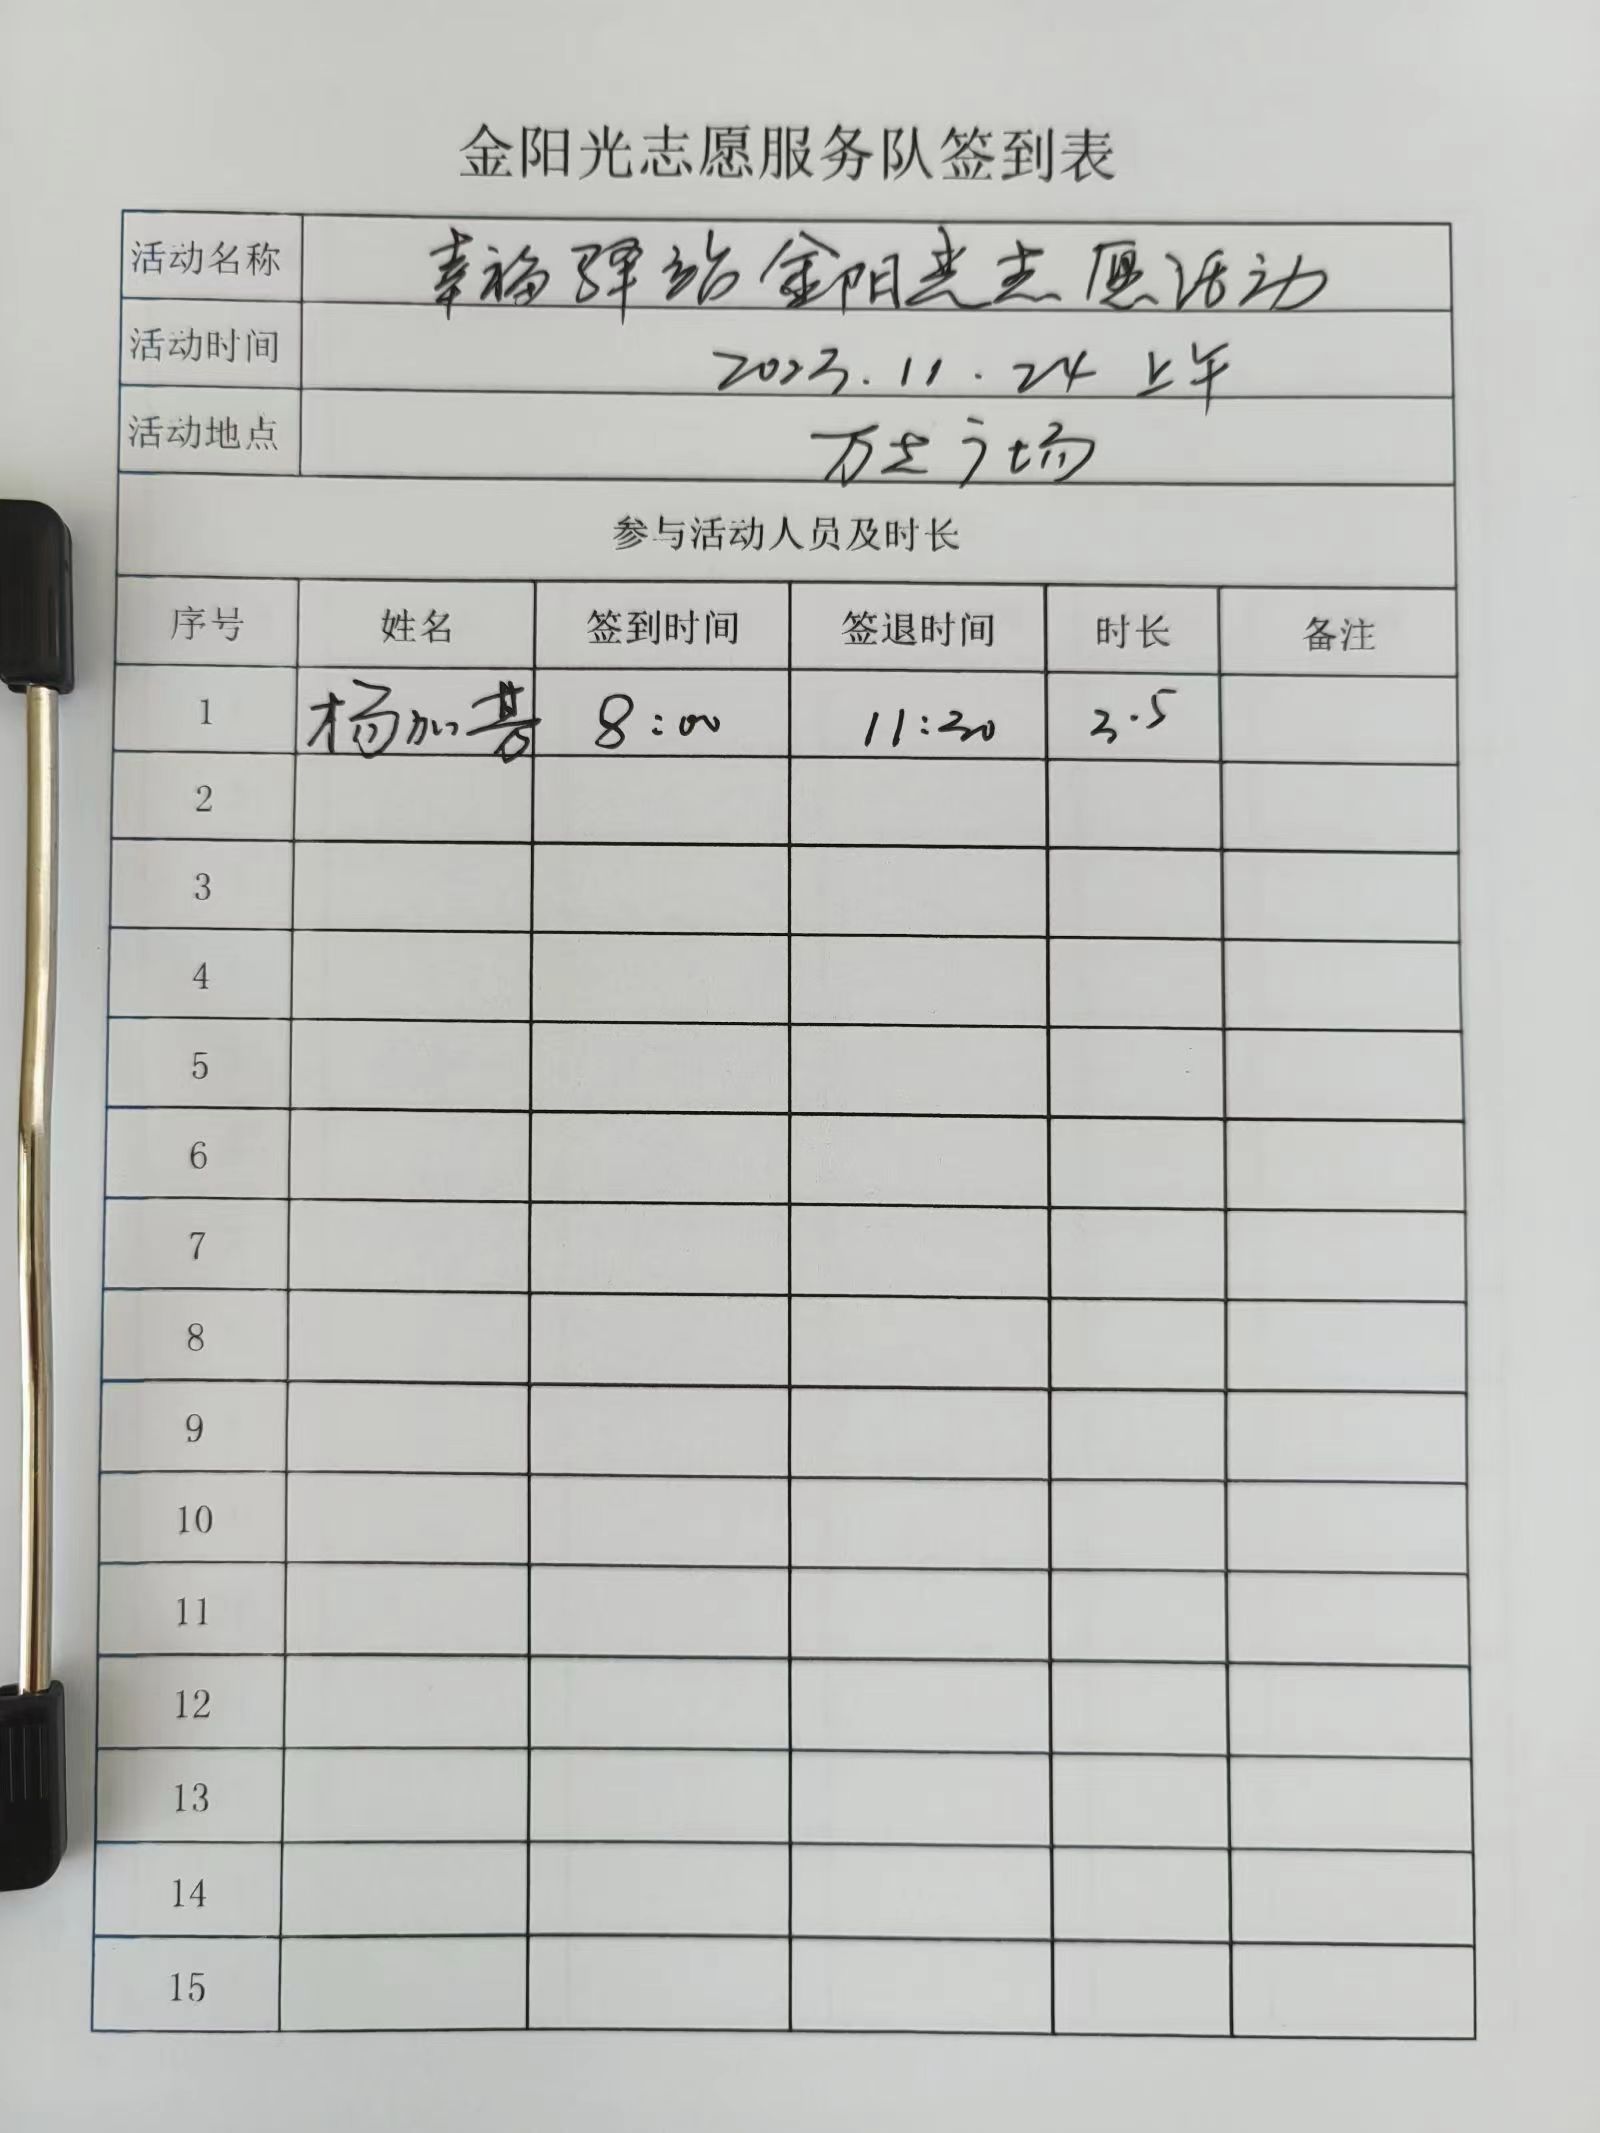 金阳光志愿服务队签到表
活动名称 幸福驿站金阳光志愿活动
活动时间 2023.11.24 上午
活动地点 万达广场
参与活动人员及时长
序号 姓名 签到时间 签退时间 时长 备注
1 杨加 8:00 11:30 3.5
2
3
4
5
6
7
8
9
10
11
12
13
14
15